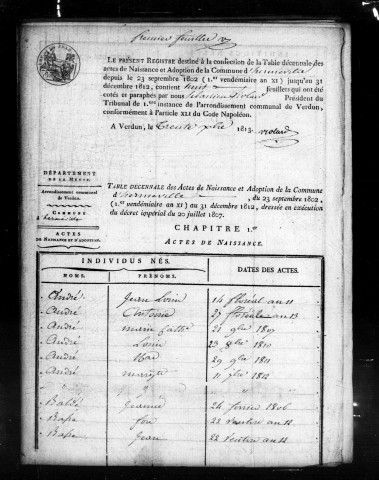 Premier feuillet
LE PRÉSENT REGISTRE destiné à la confection de la Table décennale des
actes de Naissance et Adoption de la Commune d'hermeville
depuis le 23 septembre 1802 (1.er vendémiaire an XI) jusqu'au 31
décembre 1812, contient huit feuillets qui ont été
cotés et paraphés par nous Président du
Tribunal de 1.ere instance de l'arrondissement communal de Verdun,
conformément à l'Article XLI du Code Napoléon.
A Verdun, le trente 1813.
DÉPARTEMENT
DE LA MEUSE.
Arrondissement communal
de Verdun.
COMMUNE
ACTES
DE NAISSANCE ET D'ADOPTION.
TABLE DÉCENNALE des Actes de Naissance et Adoption de la Commune
d'hermeville, du 23 septembre 1802,
(1.er vendémiaire an XI) au 31 décembre 1812, dressée en exécution
du décret impérial du 20 juillet 1807.
CHAPITRE I.er
ACTES DE NAISSANCE.
INDIVIDUS NÉS.
DATES DES ACTES.
NOMS.
PRÉNOMS.
André Jean Louis 14 floréal an 11
André Antoine 27 floréal an 13
André marie Cathe 21 9bre 1807
André Louis 23 8bre 1810
André 29 9bre 1811
André 11 1812
Jeanne 24 février 1806
22 ventose an 12
Jean 22 ventose an 12